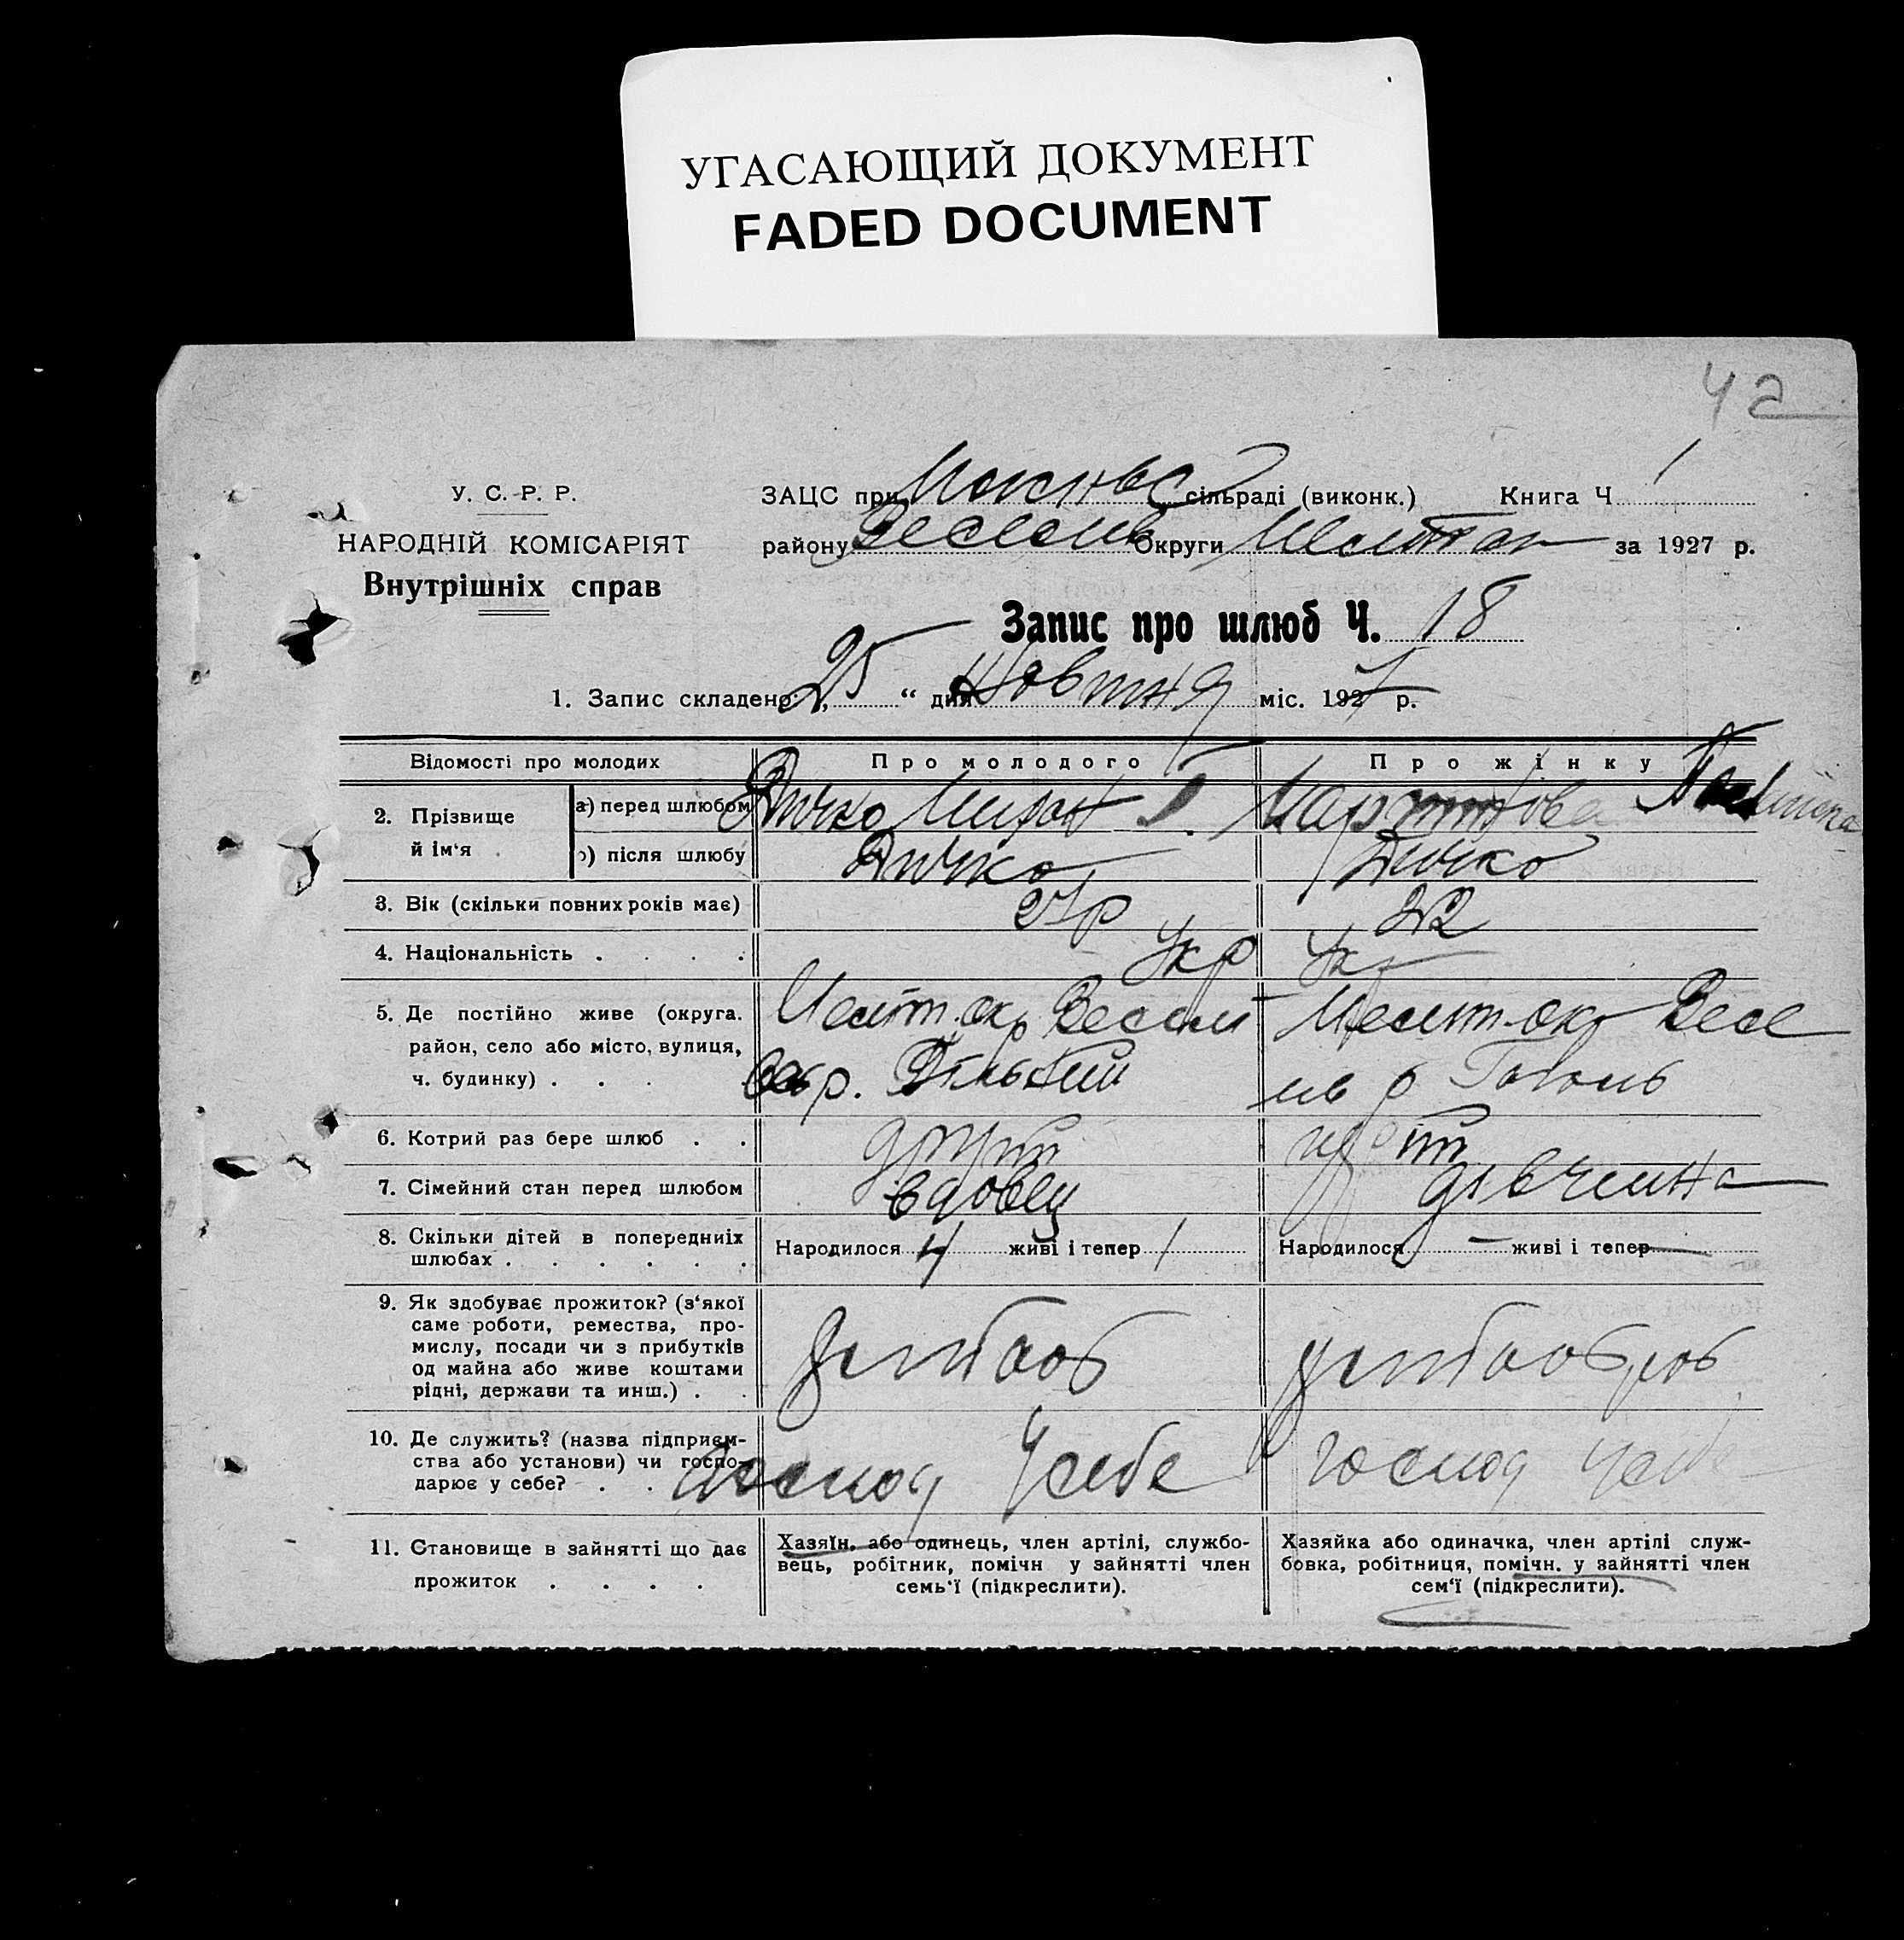 УГАСАЮЩИЙ ДОКУМЕНТ
FADED DOCUMENT
42
У. С. Р. Р.
НАРОДНІЙ КОМІСАРІЯТ
Внутрішніх справ
ЗАЦС при сільраді (виконк.) Книга Ч 1
району Округи за 1927 р.
Запис про шлюб Ч. 18
1. Запис складено „25 “ дня Жовтня міс. 1927 р.
Відомості про молодих
Про молодого
Про жінку
2. Прізвище й ім‘я
а) перед шлюбом
Дичко Мирон Т.
Мартинова
б) після шлюбу
Дичко
Дичко
3. Вік (скільки повних років має)
22
4. Національність . . . .
Укр
Укр
5. Де постійно живе (округа.
район, село або місто, вулиця,
ч. будинку) . . .
Меліт. окр Весели
р.
Меліт-окр Весе
р
6. Котрий раз бере шлюб . .
другий
7. Сімейний стан перед шлюбом
вдовец
дівчина
8. Скільки дітей в попередниіх
шлюбах . . . . . .
Народилося 4 живі і тепер 1
Народилося — живі і тепер —
9. Як здобуває прожиток? (з‘якої
саме роботи, ремества, про-
мислу, посади чи з прибутків
од майна або живе коштами
рідні, держави та инш.) . .
10. Де служить? (назва підприєм-
ства або установи) чи госпо-
дарює у себе? . .
господ у себе
господ у себе
11. Становище в зайнятті що дає
прожиток . . . .
Хазяїн, або одинець, член артілі, службо-
вець, робітник, помічн у зайнятті член
семь‘ї (підкреслити).
Хазяйка або одиначка, член артілі служ-
бовка, робітниця, помічн. у зайнятті член
сем‘ї (підкреслити).